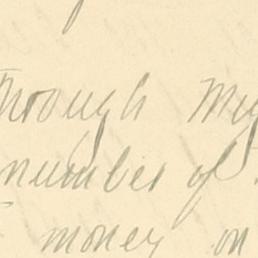 through
number of
money on